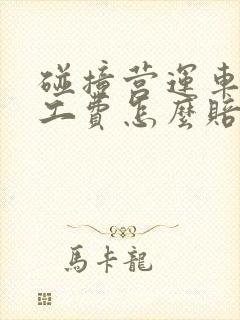 碰撞营運車
工費怎麼賠
馬卡龍